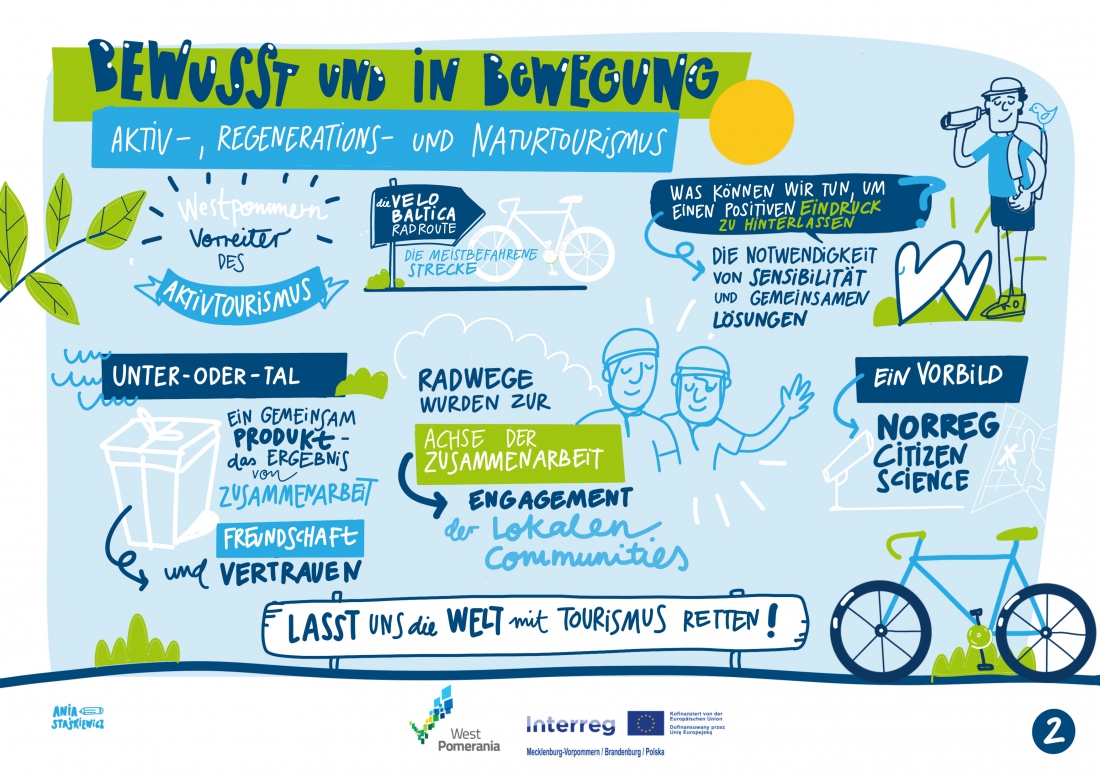 BEWUSST UND IN BEWEGUNG
AKTIV-, REGENERATIONS- UND NATURTOURISMUS
Westpommern
Vorreiter
DES
AKTIVTOURISMUS
die VELO
BALTICA
RADROUTE
DIE MEISTBEFAHRENE
STRECKE
WAS KÖNNEN WIR TUN, UM
EINEN POSITIVEN EINDRUCK
ZU HINTERLASSEN
?
DIE NOTWENDIGKEIT
VON SENSIBILITÄT
UND GEMEINSAMEN
LÖSUNGEN
UNTER-ODER-TAL
EIN GEMEINSAM
PRODUKT-
das ERGEBNIS
von
ZUSAMMENARBEIT
FREUNDSCHAFT
und VERTRAUEN
RADWEGE
WURDEN ZUR
ACHSE DER
ZUSAMMENARBEIT
ENGAGEMENT
der Lokalen
Communities
EIN VORBILD
NORREG
CITIZEN
SCIENCE
LASST UNS die WELT mit TOURISMUS RETTEN!
ANIA
STAŚKIEWICZ
West
Pomerania
Interreg
Kofinanziert von der
Europäischen Union
Dofinansowany przez
Unię Europejską
Mecklenburg-Vorpommern / Brandenburg / Polska
2